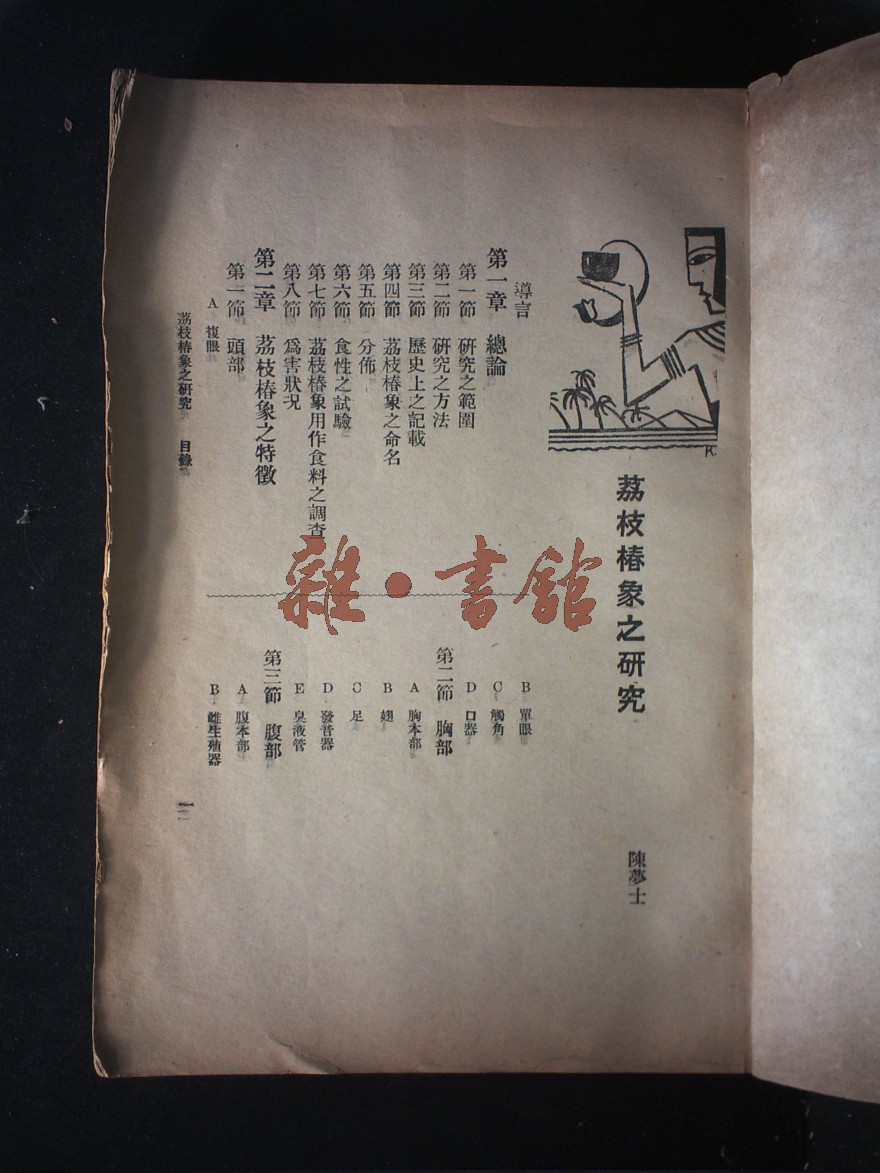 荔枝椿象之研究
陳夢士
導言
第一章 總論
第一節 研究之範圍
第二節 研究之方法
第三節 歷史上之記載
第四節 荔枝椿象之命名
第五節 分佈
第六節 食性之試驗
第七節 荔枝椿象用作食料之調查
第八節 爲害狀況
第二章 荔枝椿象之特徵
第一節 頭部
A 複眼
B 單眼
C 觸角
D 口器
第二節 胸部
A 胸本部
B 翅
C 足
D 發音器
E 臭液管
第三節 腹部
A 腹本部
B 雌生殖器
荔枝椿象之研究 目錄
雜·書館
K